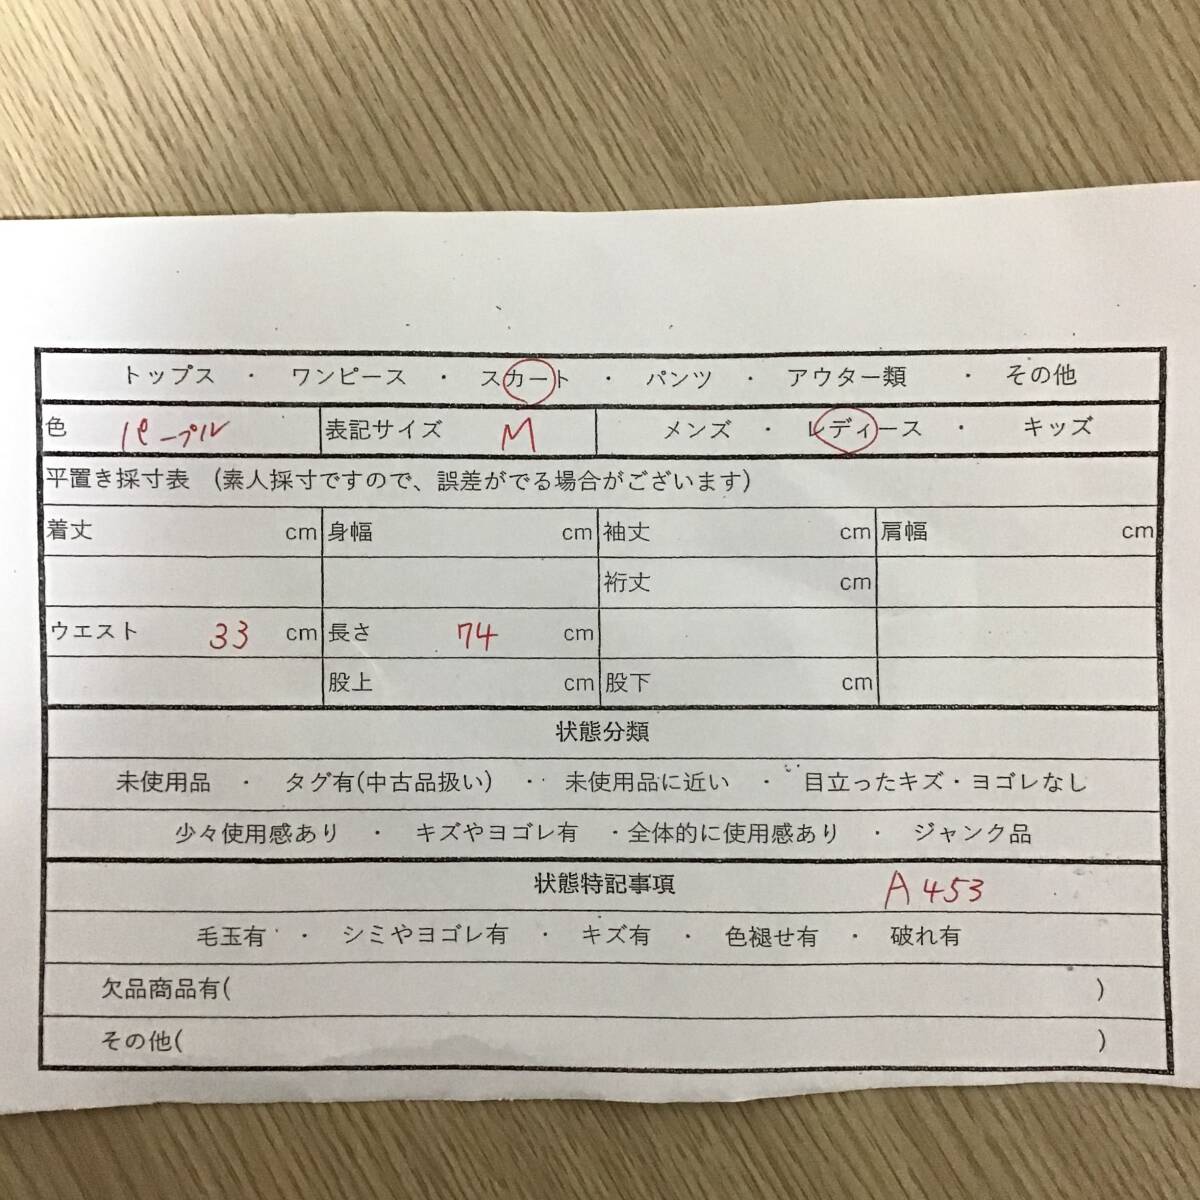 トップス ・ ワンピース ・ スカート ・ パンツ ・ アウター類 ・ その他
色 パープル 表記サイズ M メンズ ・ レディース ・ キッズ
平置き採寸表 (素人採寸ですので、誤差がでる場合がございます)
着丈 cm 身幅 cm 袖丈 cm 肩幅 cm
裄丈 cm
ウエスト 33 cm 長さ 74 cm
股上 cm 股下 cm
状態分類
未使用品 ・ タグ有(中古品扱い) ・ 未使用品に近い ・ 目立ったキズ・ヨゴレなし
少々使用感あり ・ キズやヨゴレ有 ・全体的に使用感あり ・ ジャンク品
状態特記事項 A453
毛玉有 ・ シミやヨゴレ有 ・ キズ有 ・ 色褪せ有 ・ 破れ有
欠品商品有( )
その他( )